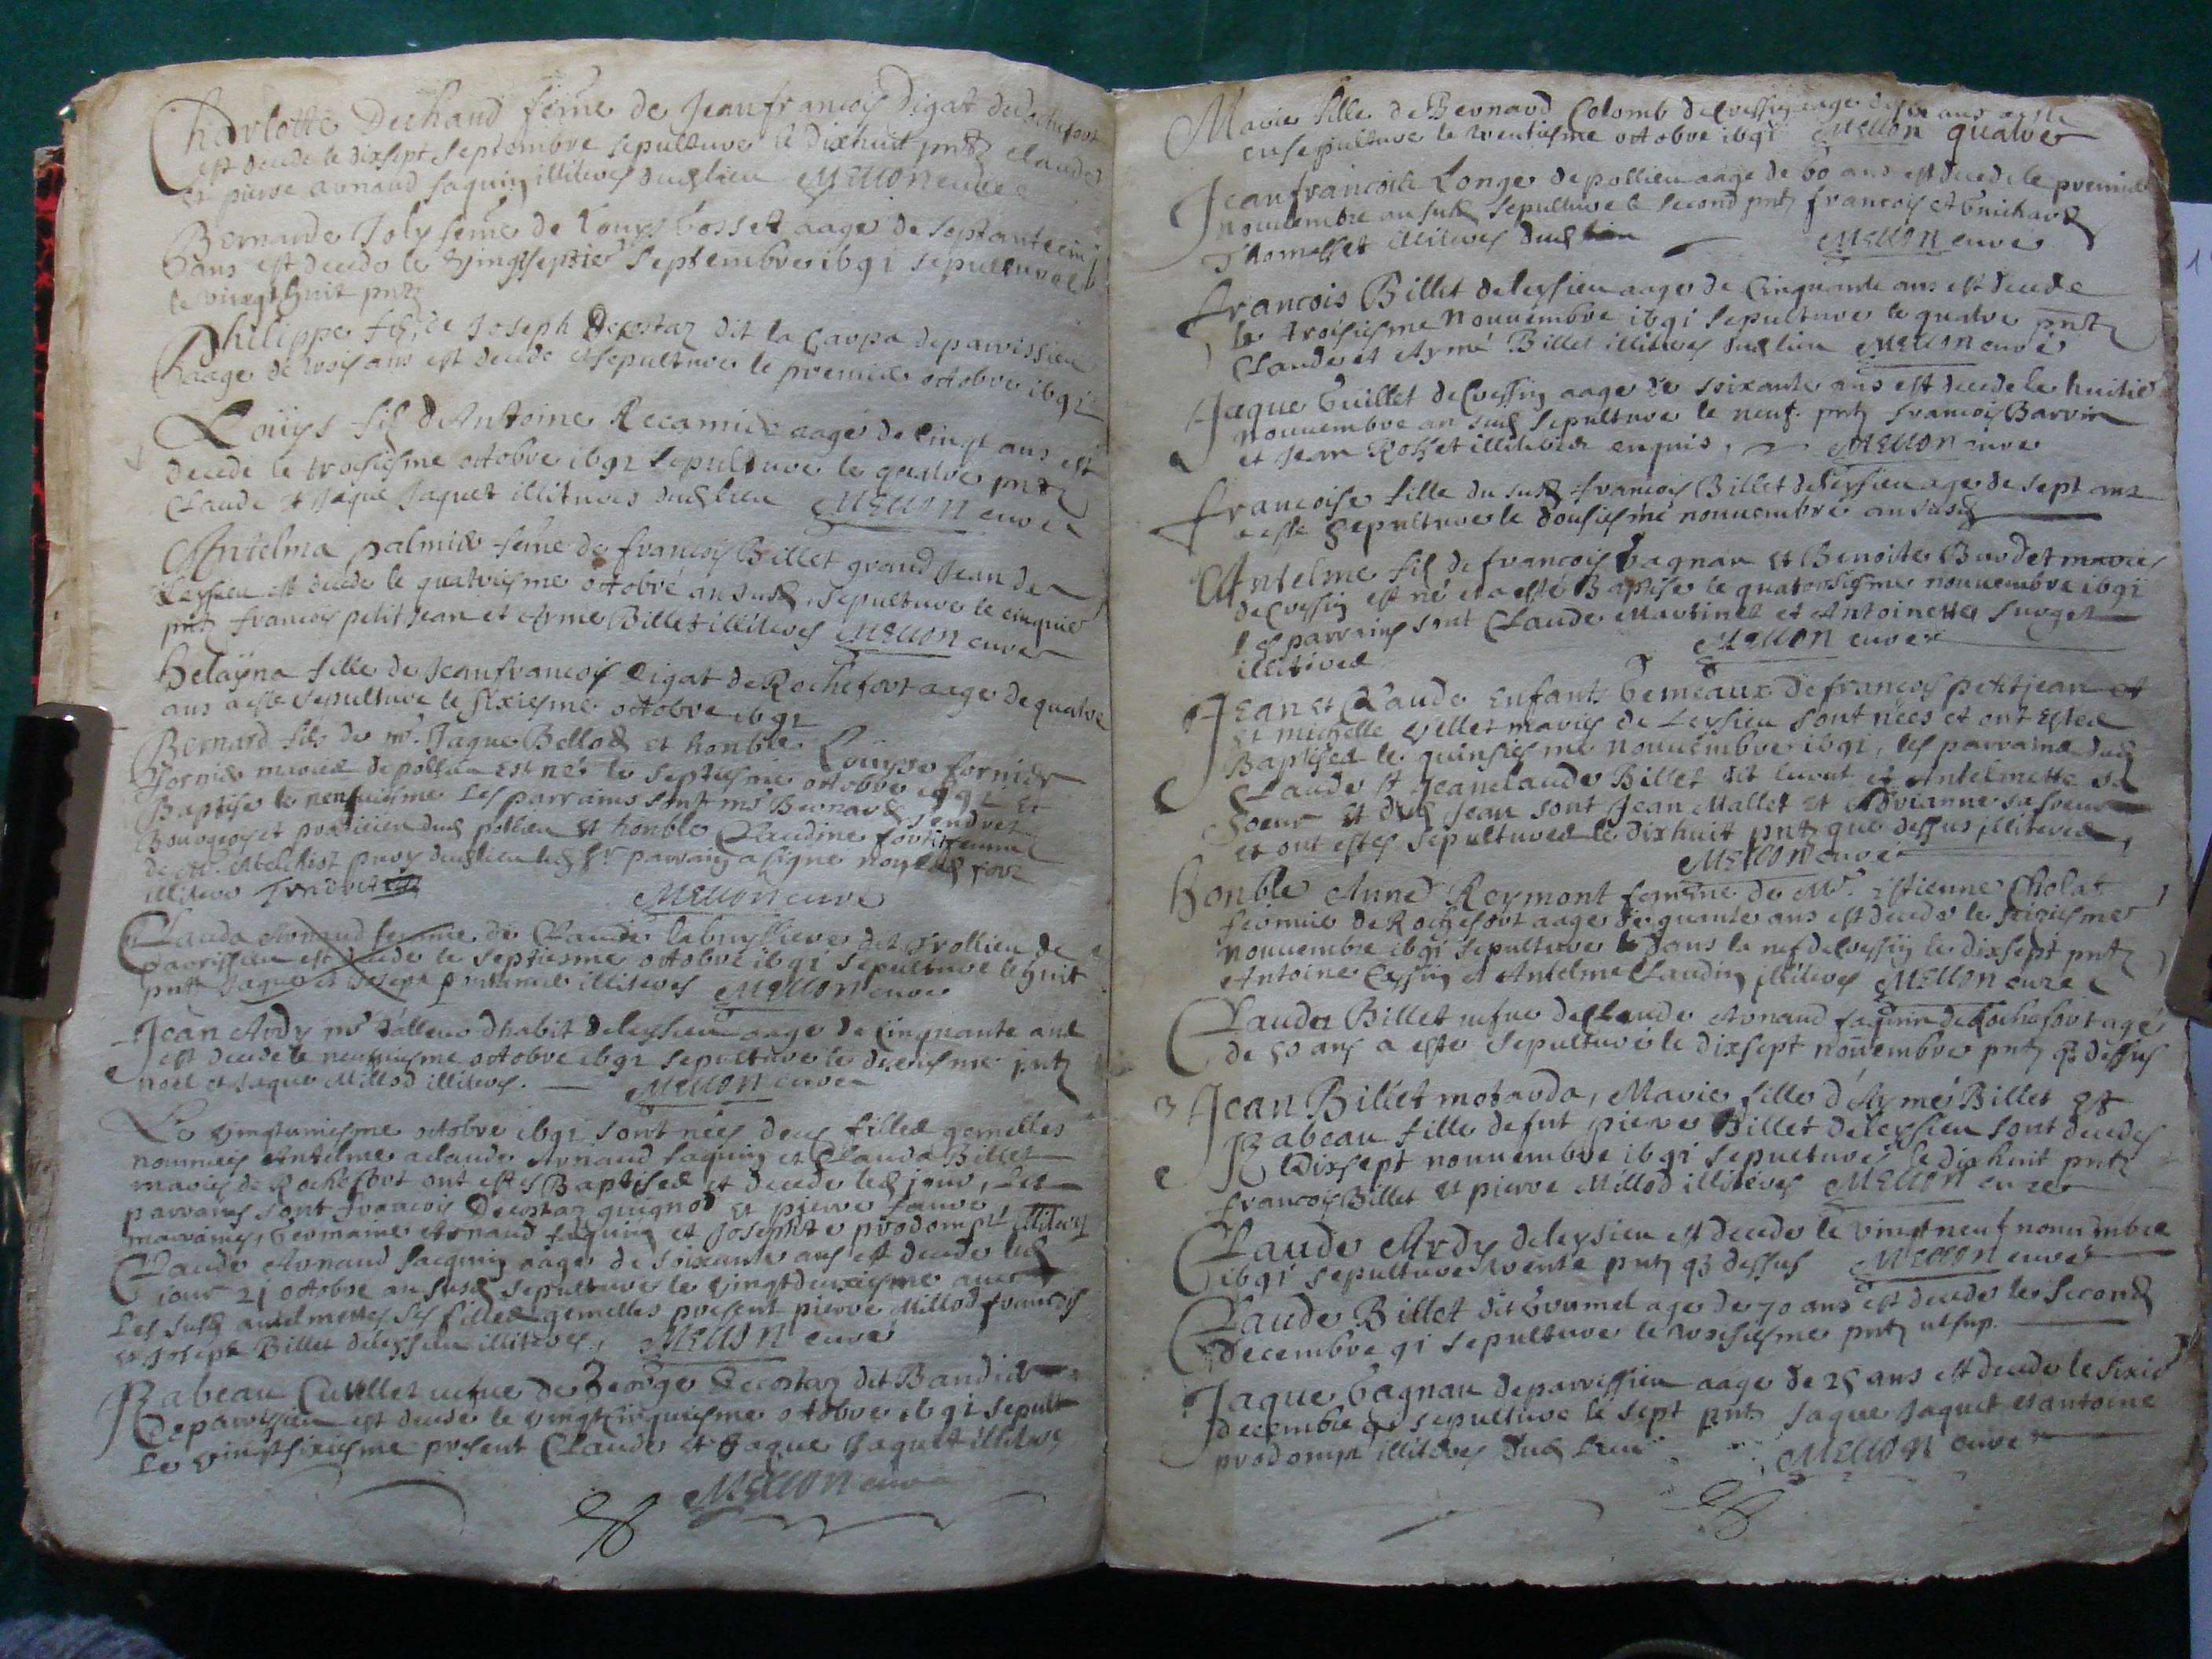 Charlotte Dechaud feme de Jeanfrancois Digat de Rochefort
est decede le dixsept septembre sepulture le dixhuit pntz Claude
et pierre arnaud saquin illiteres dud lieu Mellon curé
Bernarde Joly feme de Louys Gosset aage de septante cinq
ans est decede le vingtseptie septembre 1691 sepulture
le vingt huit pntz
Philippe fils de Joseph Decostaz dit la Carpa de parvissieu
aage de trois ans est decede et sepulture le premier octobre 1691
Louys fils d'Antoine Recamier aagé de vingt ans est
decedé le troisiesme octobre 1691 sepulture le quatre pntz
Claude et Jaque Jaquet illiteres dud lieu Mellon curé
Antelma palmier feme de francois Billet grand Jean de
Leyssieu est decede le quatriesme octobre an susd sepulture le cinquie
pntz francois petit Jean et Ayme Billet illiteres Mellon curé
Helayna fille de Jeanfrancois Digat de Rochefort aage de quatre
ans a esté sepulture le sixiesme octobre 1691
Bernard fils de mr Jaque Bellod et honble Louyse fornier
fornier mariés de pollieu est né le septiesme octobre 1691 Et
Baptise le neufuiesme Les parrains sont mr Bernard Tendret
Bourgeois et praticien dud pollieu et honble Claudine fornier femme
de mr Melchior dudlieu led sr parrain a signé non lad for
illitere Tendret
Mellon curé
Clauda Arnaud femme de Claude labruyere dit frollieu de
parvissieu est decede le septiesme octobre 1691 sepulture le huit
pntz Jaque et Joseph illiteres Mellon curé
Jean Ardy mr tallieur dhabit de leyssieu aage de cinquante ans
est decede le neufuiesme octobre 1691 sepulture le dixiesme pntz
noel et Jaque Millod illiteres. Mellon curé
Le vingtuniesme octobre 1691 sont nées deux filles gemelles
nommeés Antelme a claude Arnaud saquin et Clauda Billet
mariés de Rochefort ont estes Baptisés et decede led jour, Les
parrains sont francois Decostaz guignod et pierre faure
marraines, Germaine Arnaud saquin et Josephte prodompt illiteres
Claude Arnaud saquin aage de soixante ans est decede led
jour 21 octobre an susd sepulture le vingtdeuxiesme auec
Les susd antelmettes ses filles gemelles present pierre Millod francois
et Joseph Billet deleyssieu illiteres, Mellon curé
Izabeau Cuvillet vefue de George Decostaz dit Bandier
deparvissieu est decede le vingtcinquiesme octobre 1691 sepult
Le vingtsixiesme present Claude et Jaque Jaquet illiteres
Mellon curé
Marie fille de Bernard Colomb de Cressin aage de ans a esté
ensepulture le trentiesme octobre 1691 Mellon curé
Jeanfrancois Longe de pollieu aage de 60 ans est decede le premier
nouuembre an susd sepulture le second pntz francois et Guichard
Thomasset illiteres dud lieu Mellon curé
francois Billet deleyssieu aage de Cinquante ans est decede
le troisiesme nouuembre 1691 sepulture le quatre pntz
Claude et Aymé Billet illiteres dud lieu Mellon curé
Jaque Guillet de Cressin aage de soixante ans est decede le huitie
nouuembre an susd sepulture le neuf. pntz francois Barrin
et Jean Rosset illiteres enquis, Mellon curé
francoise fille du susd francois Billet deleyssieu age de sept ans
a esté sepulture le dousiesme nouuembre an susd
Antelme fils de francois Gagnau et Benoite Burdet mariés
de Cressin est né et a esté Baptise le quatorsiesme nouuembre 1691
Les parrains sont Claude Martinet et Antoinette surget
illiteres Mellon curé
Jean et Claude Enfants Gemeaux de francois petitjean et
et michelle Villet mariés de Leyssieu sont nées et ont Estes
Baptisés le quinsiesme nouuembre 1691, les parrains dud
Claude st Jeanclaude Billet dit et Antelmette sa
soeur et dud Jean sont Jean Mallet et Adrianne sa soeur
et ont estes sepultures le dixhuit pntz que dessus illiteres,
Mellon curé
Honble Anne Reymont femme de Mr. Estienne Cholat
fermier de Rochefort aage de quante ans est decede le seiziesme
nouuembre 1691 sepulture dans la nef de Cressin le dixsept pntz
Antoine Cressin et Antelme Claudin illiteres Mellon curé
Clauda Billet vefue de Claude Arnaud saquin de Rochefort agé
de 50 ans a este sepulturé le dixsept nouembre pntz q dessus
3 Jean Billet motarda, Marie fille d'Aymé Billet et
Izabeau fille de fut pierre Billet deleyssieu sont decedes
le dixsept nouuembre 1691 sepultures le dixhuit pntz
francois Billet et pierre Millod illiteres Mellon curé
Claude Ardy deleyssieu est decede le vingt neuf nouembre
1691 sepulture trente pntz q dessus Mellon curé
Claude Billet dit Grumel age de 70 ans est decede le second
decembre 91 sepulture le troisiesme pntz ut sup.
Jaque Gagnau deparvissieu aage de 25 ans est decede le sixie
decembre 91 sepulture le sept pntz Jaque Jaquet et antoine
prodompt illiteres dud lieu Mellon curé